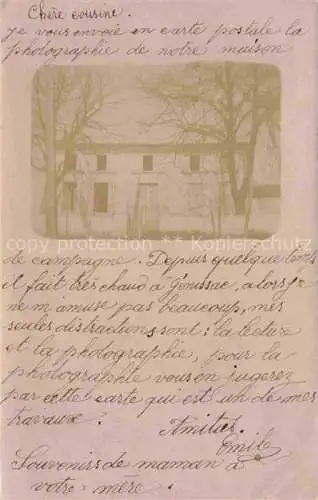 Chère cousine.
je vous envoie en carte postale la
photographie de notre maison
oldthing Kopierschutz
de campagne. Depuis quelque temps
il fait très chaud à Goussac, alors je
ne m'amuse pas beaucoup, mes
seules distractions sont : la lecture
et la photographie, pour la
photographie vous en jugerez
par cette carte qui est un de mes
travaux.
Amitiés.
Emile
Souvenirs de maman à
votre mère.